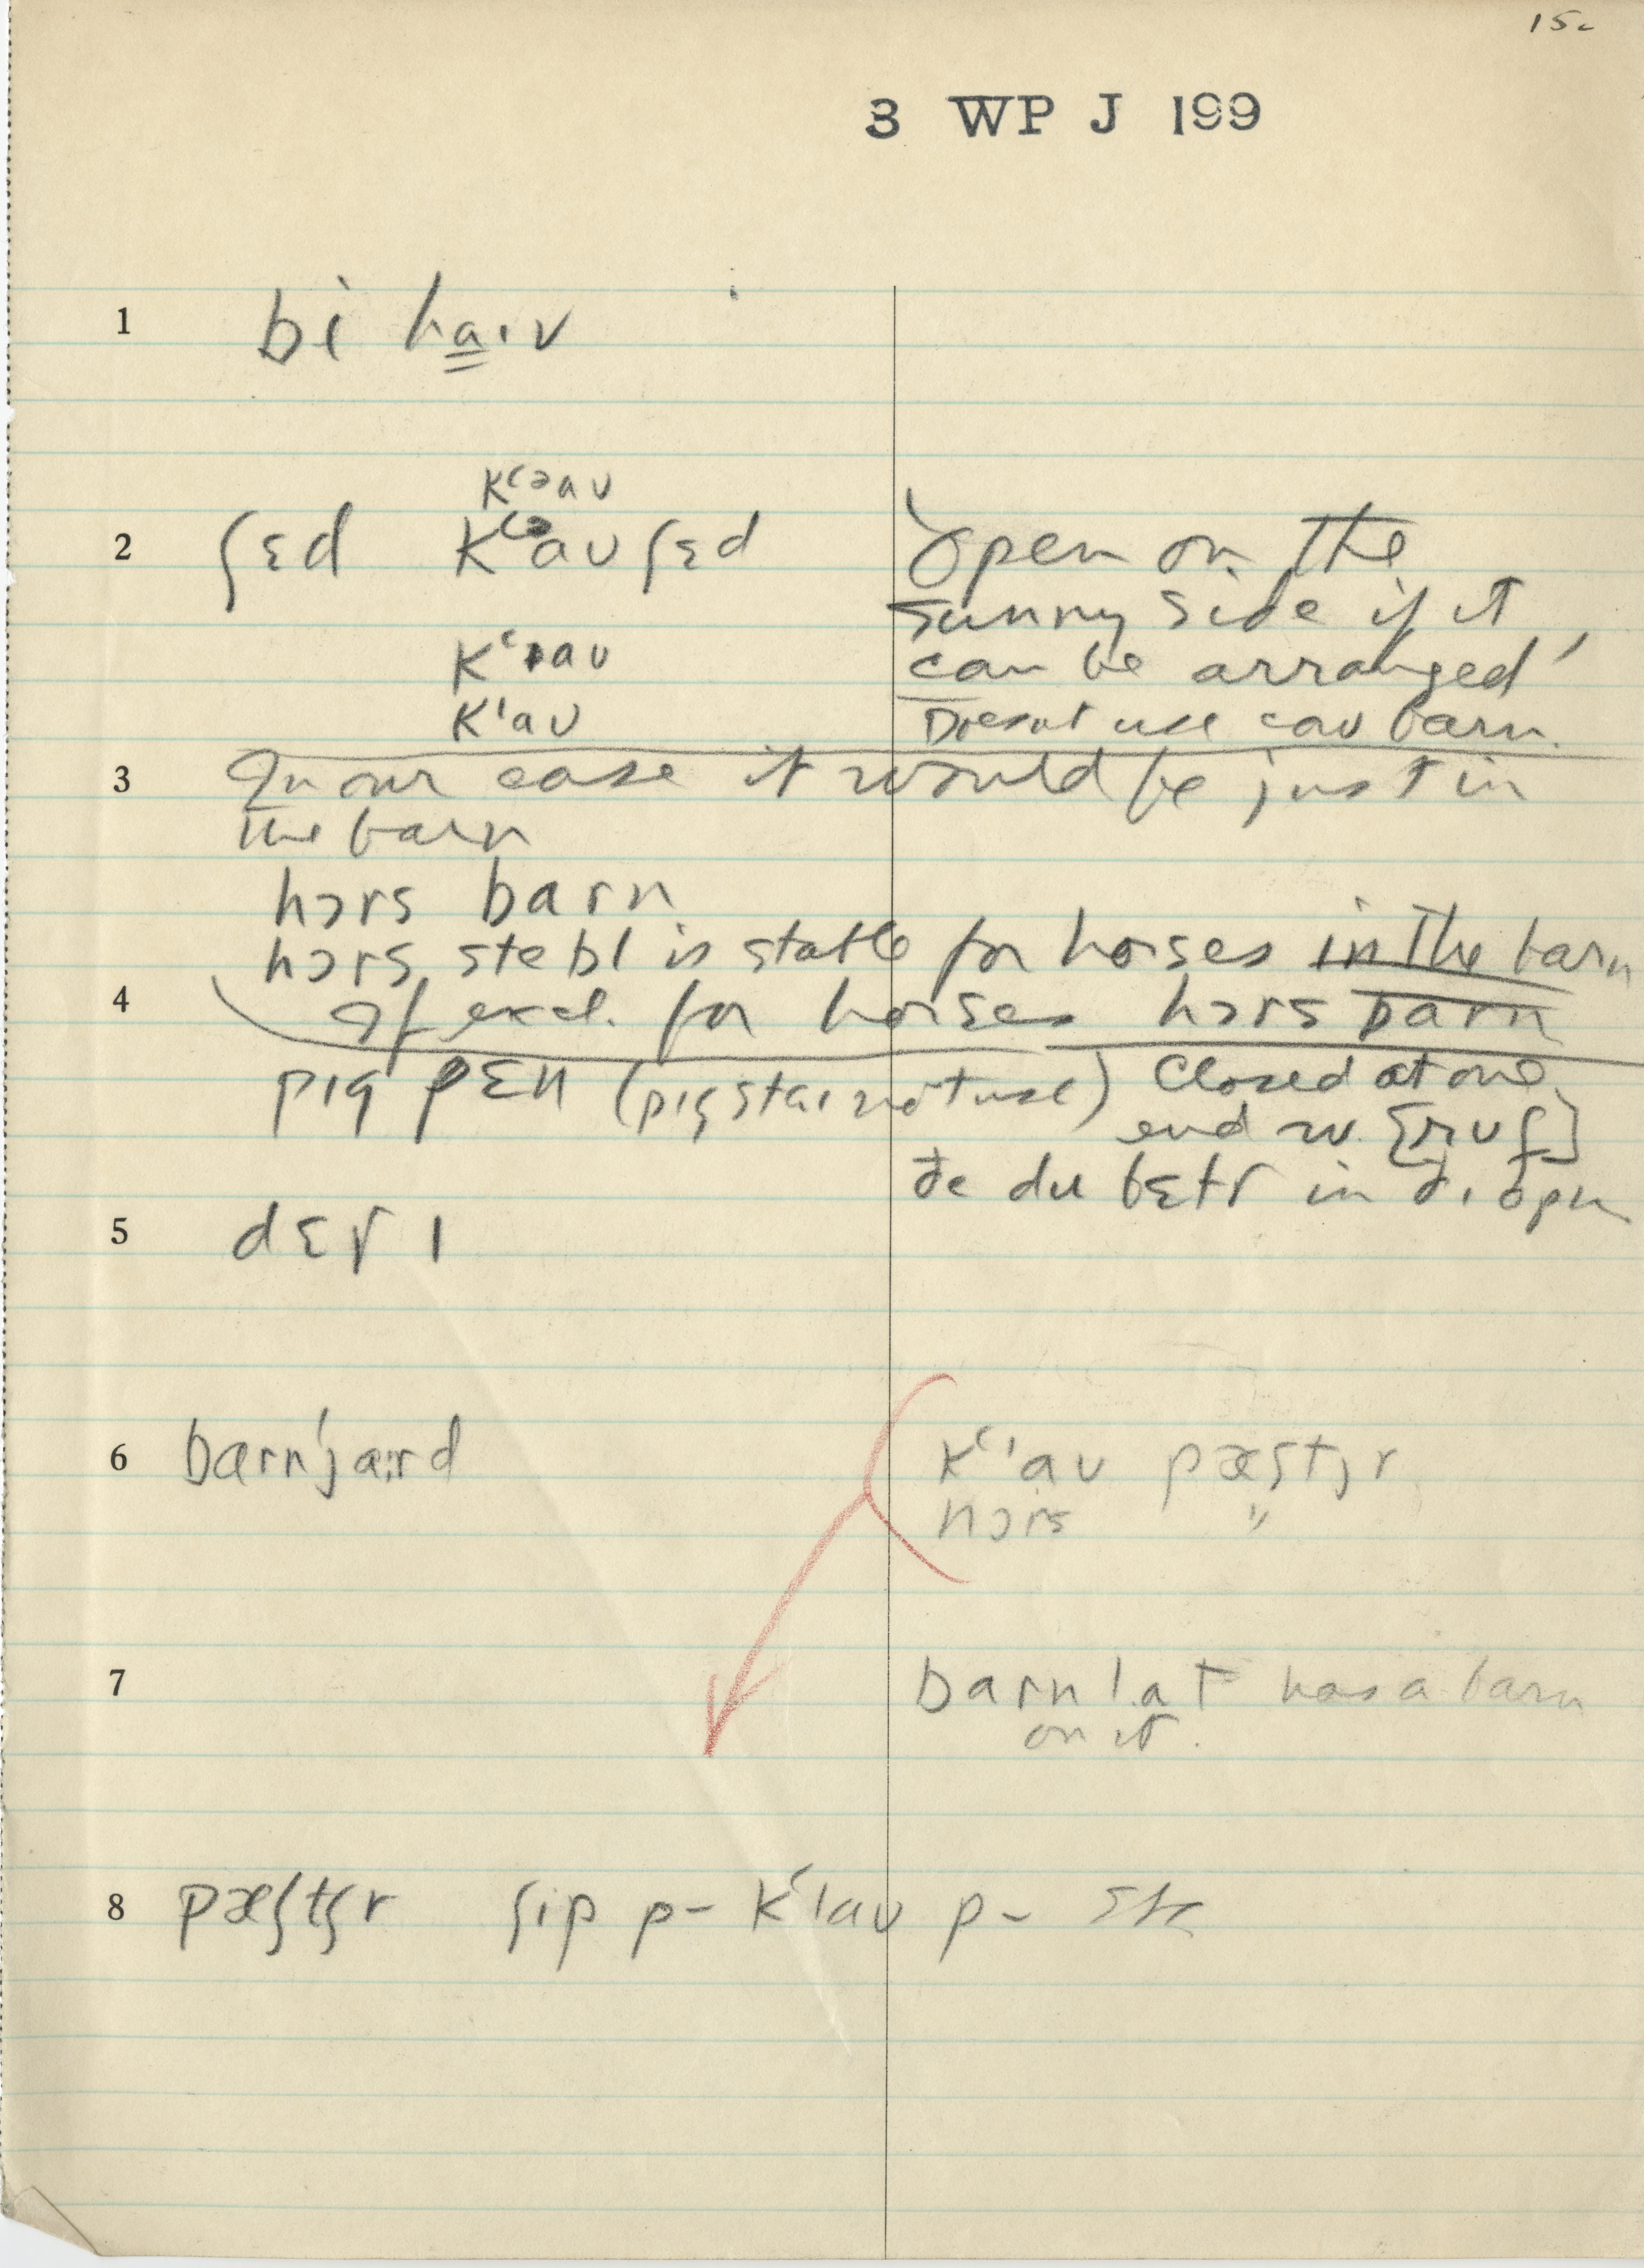 15c
3 WP J 199
1 bi ha̳ɪv
kʽᵊaʊ
2 ʃɛd kʽᵊaʊ ʃɛd
open on the
sunny side if it
can be arranged
kʽaʊ
kꞌaʊ
Doesnt use caʊ barn.
3 In our case it would be just in
the barn
hɔrs barn
hɔrs stebl is stable for horses in the barn
4 If excl. for horses hɔrs barn
pɪg pɛn (pɪg staɪ not use) closed at one
end w. [ruf]
ðe du bɛtr in ð. opn
5 dɛrɪ
6 barn'ja:rd
kʽꞌaʊ pæstʃr
hɔrs "
7 barn lat has a barn
on it.
8 pæʃtʃr ʃip p- kʽꞌaʊ p- etc